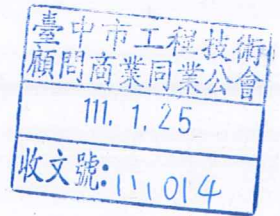 臺中市工程技術
顧問商業同業公會
111. 1. 25
收文號:111014